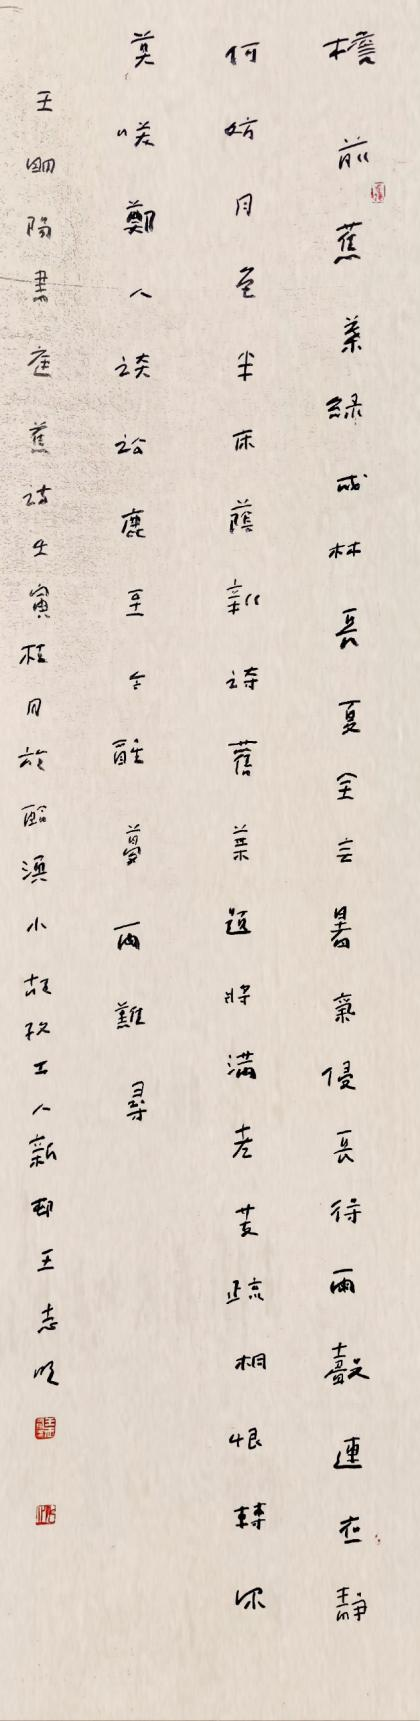 檐前蕉葉緑成林長夏全无暑氣侵長得雨聲連夜静
何妨月色半床蔭新詩舊葉題將滿老芰疏桐恨轉深
莫咲鄭人談訟鹿至今醒夢兩難尋
王朙陽書庭蕉詩壬寅桂月於溟小工人新邨王志